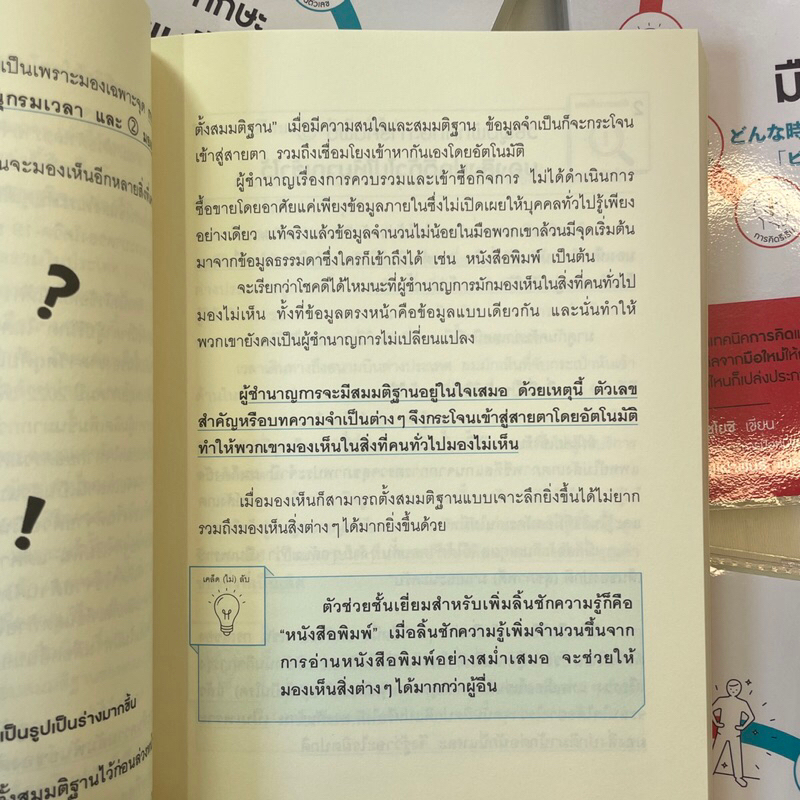 ตั้งสมมติฐาน" เมื่อมีความสนใจและสมมติฐาน ข้อมูลจำเป็นก็จะกระโจน
เข้าสู่สายตา รวมถึงเชื่อมโยงเข้าหากันเองโดยอัตโนมัติ
ผู้ชำนาญเรื่องการควบรวมและเข้าซื้อกิจการ ไม่ได้ดำเนินการ
ซื้อขายโดยอาศัยแค่เพียงข้อมูลภายในซึ่งไม่เปิดเผยให้บุคคลทั่วไปรู้เพียง
อย่างเดียว แท้จริงแล้วข้อมูลจำนวนไม่น้อยในมือพวกเขาล้วนมีจุดเริ่มต้น
มาจากข้อมูลธรรมดาซึ่งใครก็เข้าถึงได้ เช่น หนังสือพิมพ์ เป็นต้น
จะเรียกว่าโชคดีได้ไหมนะที่ผู้ชำนาญการมักมองเห็นในสิ่งที่คนทั่วไป
มองไม่เห็น ทั้งที่ข้อมูลตรงหน้าคือข้อมูลแบบเดียวกัน และนั่นทำให้
พวกเขายังคงเป็นผู้ชำนาญการไม่เปลี่ยนแปลง
ผู้ชำนาญการจะมีสมมติฐานอยู่ในใจเสมอ ด้วยเหตุนี้ ตัวเลข
สำคัญหรือบทความจำเป็นต่างๆ จึงกระโจนเข้าสู่สายตาโดยอัตโนมัติ
ทำให้พวกเขามองเห็นในสิ่งที่คนทั่วไปมองไม่เห็น
เมื่อมองเห็นก็สามารถตั้งสมมติฐานแบบเจาะลึกยิ่งขึ้นได้ไม่ยาก
รวมถึงมองเห็นสิ่งต่างๆ ได้มากยิ่งขึ้นด้วย
เคล็ด (ไม่) ลับ
ตัวช่วยชั้นเยี่ยมสำหรับเพิ่มลิ้นชักความรู้ก็คือ
"หนังสือพิมพ์" เมื่อลิ้นชักความรู้เพิ่มจำนวนขึ้นจาก
การอ่านหนังสือพิมพ์อย่างสม่ำเสมอ จะช่วยให้
มองเห็นสิ่งต่างๆ ได้มากกว่าผู้อื่น
เป็นเพราะมองเฉพาะจุด
กรมเวลา และ ②
นจะมองเห็นอีกหลายสิ่ง
?
!
เป็นรูปเป็นร่างมากขึ้น
ตั้งสมมติฐานไว้ก่อน
どんな時
เทคนิคการคิด
จากมือใหม่ให้
ไหนก็เปล่งประกา
เขียน